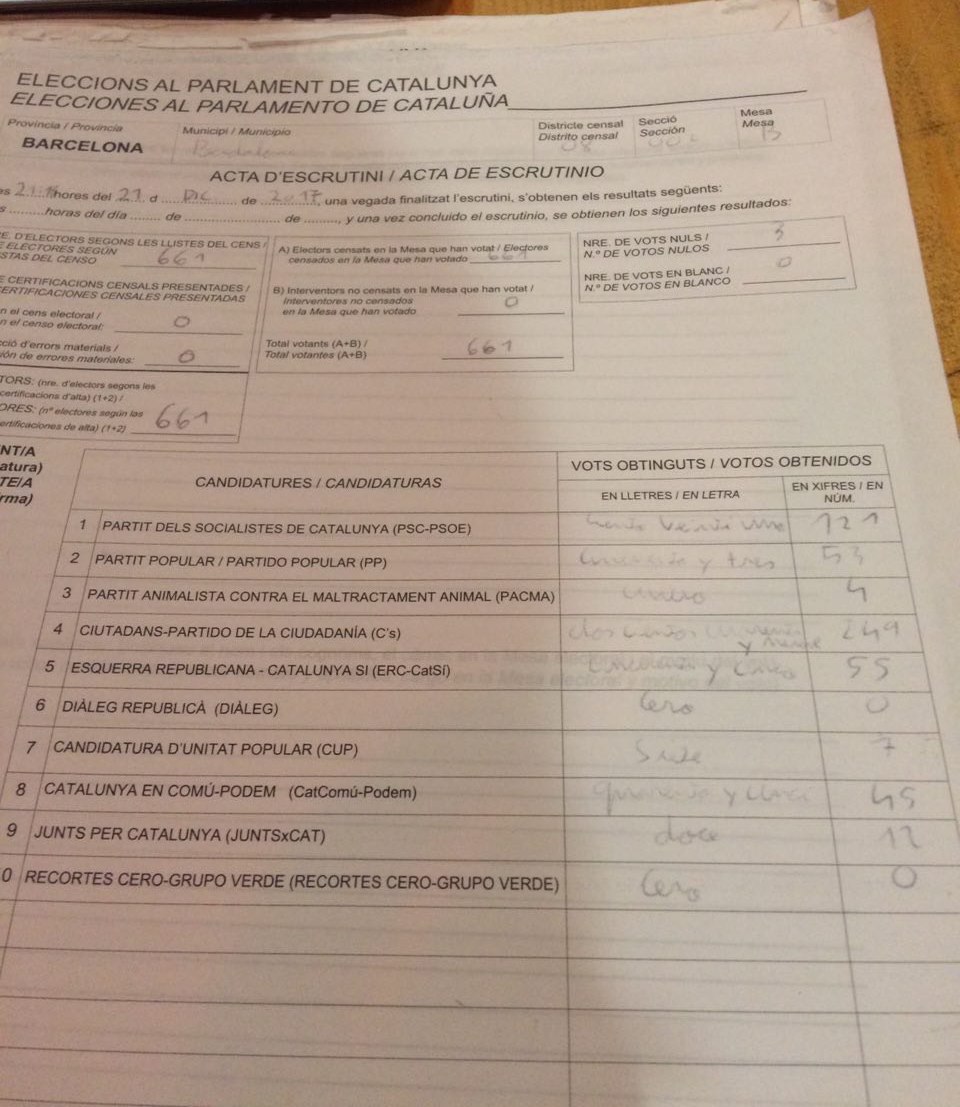 ELECCIONS AL PARLAMENT DE CATALUNYA
ELECCIONES AL PARLAMENTO DE CATALUÑA
Província / Provincia
BARCELONA
Municipi / Municipio
Districte censal
Distrito censal
08
Secció
Sección
Mesa
Mesa
B
ACTA D'ESCRUTINI / ACTA DE ESCRUTINIO
hores del 21 d DIC de 2017, una vegada finalitzat l'escrutini, s'obtenen els resultats següents:
horas del día de de , y una vez concluido el escrutinio, se obtienen los siguientes resultados:
E. D'ELECTORS SEGONS LES LLISTES DEL CENS /
E ELECTORES SEGÚN
STAS DEL CENSO 661
E CERTIFICACIONS CENSALS PRESENTADES /
ERTIFICACIONES CENSALES PRESENTADAS
n el cens electoral /
n el censo electoral: 0
ció d'errors materials /
ión de errores materiales: 0
TORS: (nre. d'electors segons les
certificacions d'alta) (1+2) /
ORES: (nº electores según las
ertificaciones de alta) (1+2) 661
A) Electors censats en la Mesa que han votat / Electores
censados en la Mesa que han votado 661
B) Interventors no censats en la Mesa que han votat /
Interventores no censados
en la Mesa que han votado 0
Total votants (A+B) /
Total votantes (A+B) 661
NRE. DE VOTS NULS /
N.º DE VOTOS NULOS 3
NRE. DE VOTS EN BLANC /
N.º DE VOTOS EN BLANCO 0
NT/A
atura)
TE/A
rma)
CANDIDATURES / CANDIDATURAS
VOTS OBTINGUTS / VOTOS OBTENIDOS
EN LLETRES / EN LETRA
EN XIFRES / EN NÚM.
1 PARTIT DELS SOCIALISTES DE CATALUNYA (PSC-PSOE) 121
2 PARTIT POPULAR / PARTIDO POPULAR (PP) cincuenta y tres 53
3 PARTIT ANIMALISTA CONTRA EL MALTRACTAMENT ANIMAL (PACMA) cuatro 4
4 CIUTADANS-PARTIDO DE LA CIUDADANÍA (C's) 249
5 ESQUERRA REPUBLICANA - CATALUNYA SI (ERC-CatSí) cincuenta y cinco 55
6 DIÀLEG REPUBLICÀ (DIÀLEG) Cero 0
7 CANDIDATURA D'UNITAT POPULAR (CUP) Siete 7
8 CATALUNYA EN COMÚ-PODEM (CatComú-Podem) 45
9 JUNTS PER CATALUNYA (JUNTSxCAT) doce 12
0 RECORTES CERO-GRUPO VERDE (RECORTES CERO-GRUPO VERDE) Cero 0